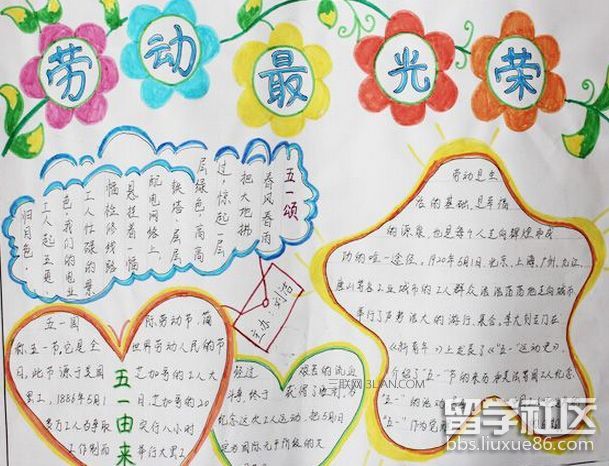 劳动最光荣
五一颂
春风春雨
把大地拂
过,惊起一层
层绿色,高高
铁塔,层层
配电网络上,
悬挂着一幅
幅检修线路
工人忙碌的景
色,我们的电业
工人起五更
归日色,
劳动是生
存的基础,是幸福
的源泉,也是每个人走向辉煌和成
功的唯一途径。1920年5月1日,北京、上海、广州、九江、
唐山等各工业城市的工人群众浩浩荡荡地走向城市
举行了声势浩大的游行、集会。李大钊五门在
《新青年》上发表了《"五一"运动史》,
介绍了"五一"节的来历和美法等国工人纪念
"五一"的活动
"五一"作为
主办:刘浩
五一国 际劳动节,简
称五一节,它是全 世界劳动人民的节
日。此节源于美国 芝加哥的工人大
罢工,1886年5月1 芝加哥的20
多万工人为争取 实行八小时
工作制而 举行大罢工
五一由来
经过 艰苦的流血
斗争,终于 获得了胜利。为
纪念这次工人运动,把5月1日
定为国际无产阶级的大
三联网 3LIAN.COM
留学社区
bbs.liuxue86.com